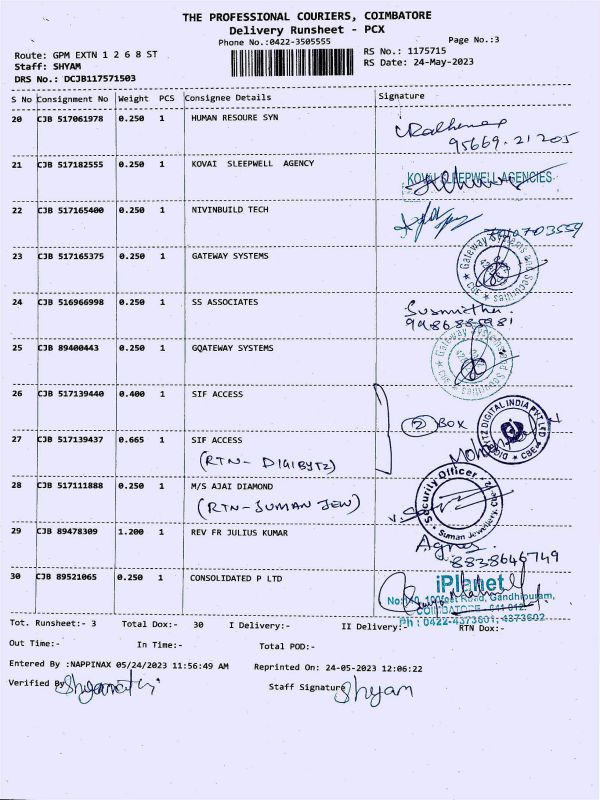 THE PROFESSIONAL COURIERS, COIMBATORE
Delivery Runsheet - PCX
Phone No.:0422-3505555
Page No.:3
Route: GPM EXTN 1 2 6 8 ST
RS No.: 1175715
Staff: SHYAM
RS Date: 24-May-2023
DRS No.: DCJB117571503
S No Consignment No Weight PCS Consignee Details Signature
20 CJB 517061978 0.250 1 HUMAN RESOURE SYN
95669.21205
21 CJB 517182555 0.250 1 KOVAI SLEEPWELL AGENCY
KOVAI SLEEPWELL AGENCIES
22 CJB 517165400 0.250 1 NIVINBUILD TECH
23 CJB 517165375 0.250 1 GATEWAY SYSTEMS
Gateway Systems and Securities CBE
24 CJB 516966998 0.250 1 SS ASSOCIATES
Susmitha
25 CJB 89400443 0.250 1 GQATEWAY SYSTEMS
Gateway Systems and Securities CBE
26 CJB 517139440 0.400 1 SIF ACCESS
2 BOX
DIGIBYTZ DIGITAL INDIA PVT LTD CBE-4
27 CJB 517139437 0.665 1 SIF ACCESS
(RTN- DIGIBYTZ)
28 CJB 517111888 0.250 1 M/S AJAI DIAMOND
(RTN-SUMAN JEW)
Security Officer
Suman Jewellery, Cbe
29 CJB 89478309 1.200 1 REV FR JULIUS KUMAR
Agnes
8838646749
30 CJB 89521065 0.250 1 CONSOLIDATED P LTD
iPlanet
100feet Road, Gandhipuram,
COIMBATORE - 641 012.
Ph : 0422-4373601, 4373602
Tot. Runsheet:- 3 Total Dox:- 30 I Delivery:- II Delivery:- RTN Dox:-
Out Time:- In Time:- Total POD:-
Entered By :NAPPINAX 05/24/2023 11:56:49 AM Reprinted On: 24-05-2023 12:06:22
Verified By
Staff Signature Shyam